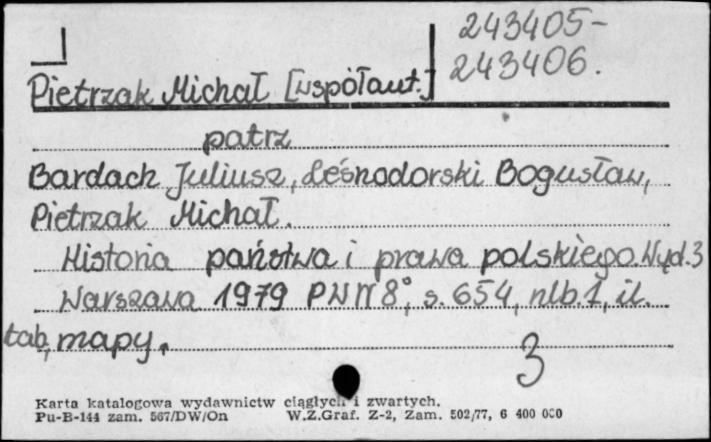 243405-
243406.
Pietrzak Michał [współaut.]
patrz
Bardach Juliusz, Leśnodorski Bogusław,
Pietrzak Michał.
Historia państwa i prawa polskiego. Wyd. 3
Warszawa 1979 PWN 8°, s. 654, nlb. 1, il.
tab, mapy.
3
Karta katalogowa wydawnictw ciągłych i zwartych.
Pu-B-144 zam. 567/DW/On W.Z.Graf. Z-2, Zam. 502/77, 6 400 000